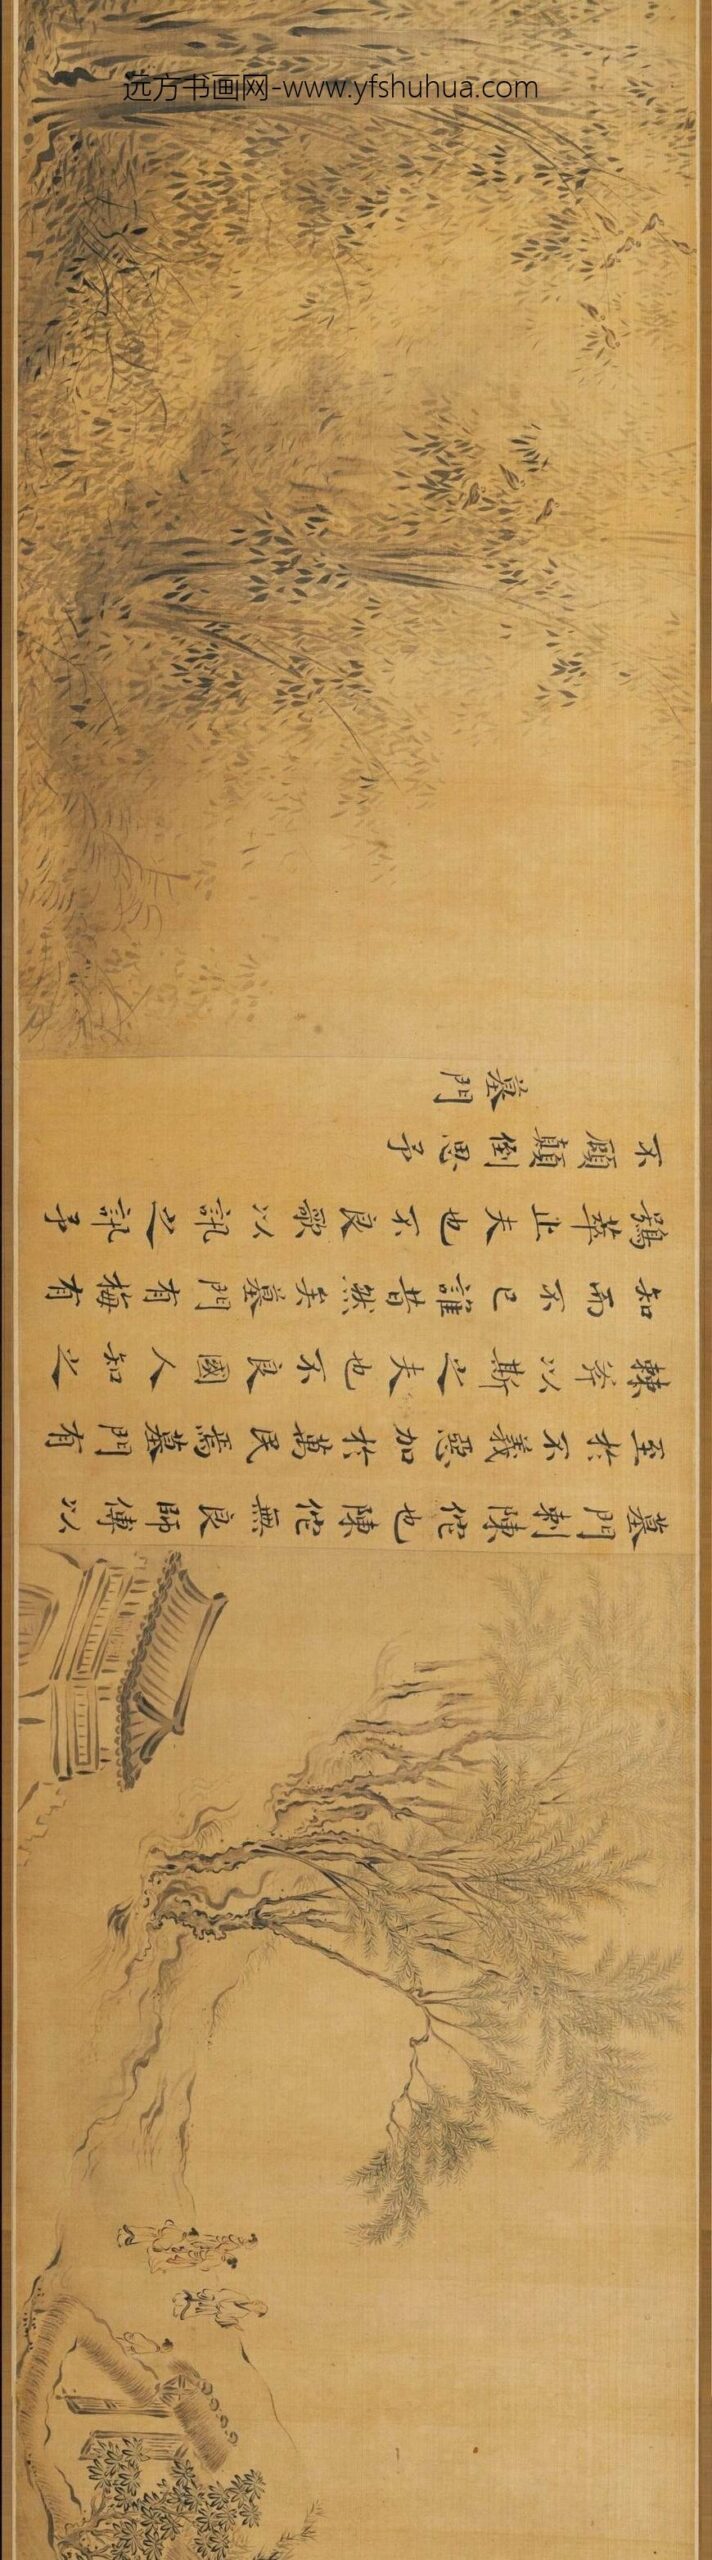 远方书画网-www.yfshuhua.com
墓門刺陳佗也陳佗無良師傅以
至於不義惡加於萬民焉墓門有
棘斧以斯之夫也不良國人知之
知而不已誰昔然矣墓門有梅有
鴞萃止夫也不良歌以訊之訊予
不顧顛倒思予
墓門